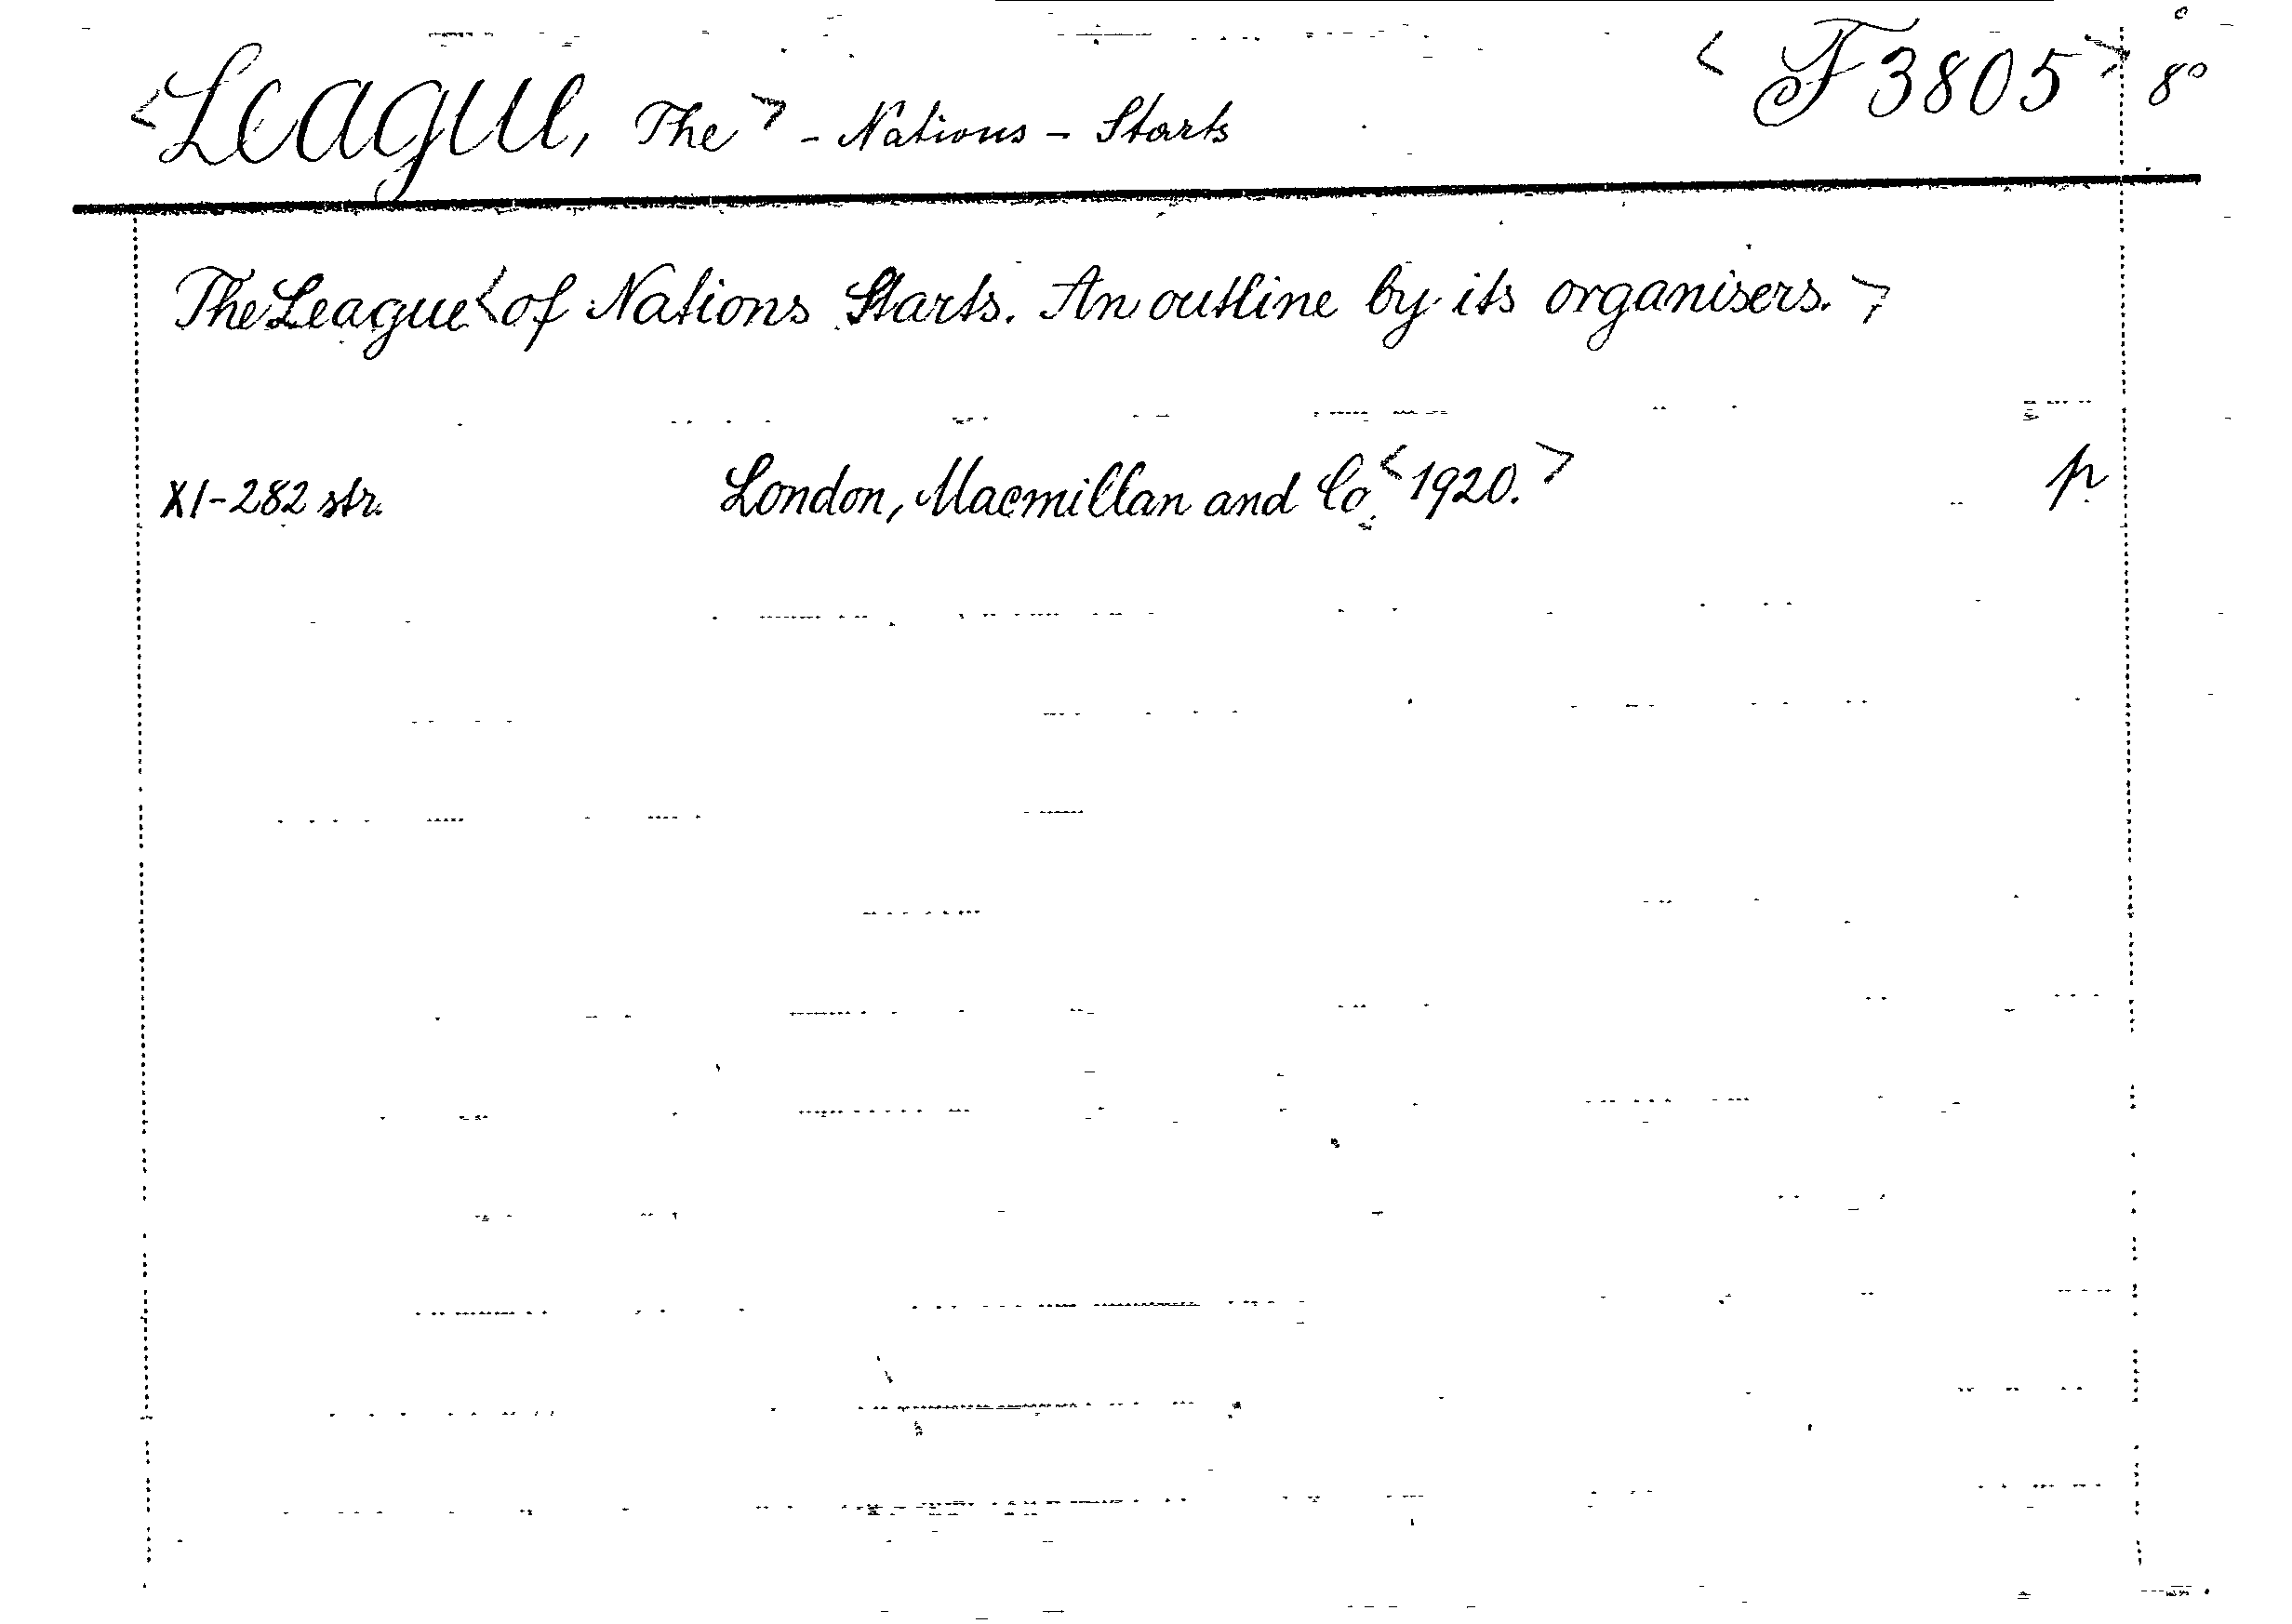 <League, The> - Nations - Starts <F 3805> 8°
The League <of Nations Starts. An outline by its organisers.>
XI-282 str. London, Macmillan and Co. <1920.> p